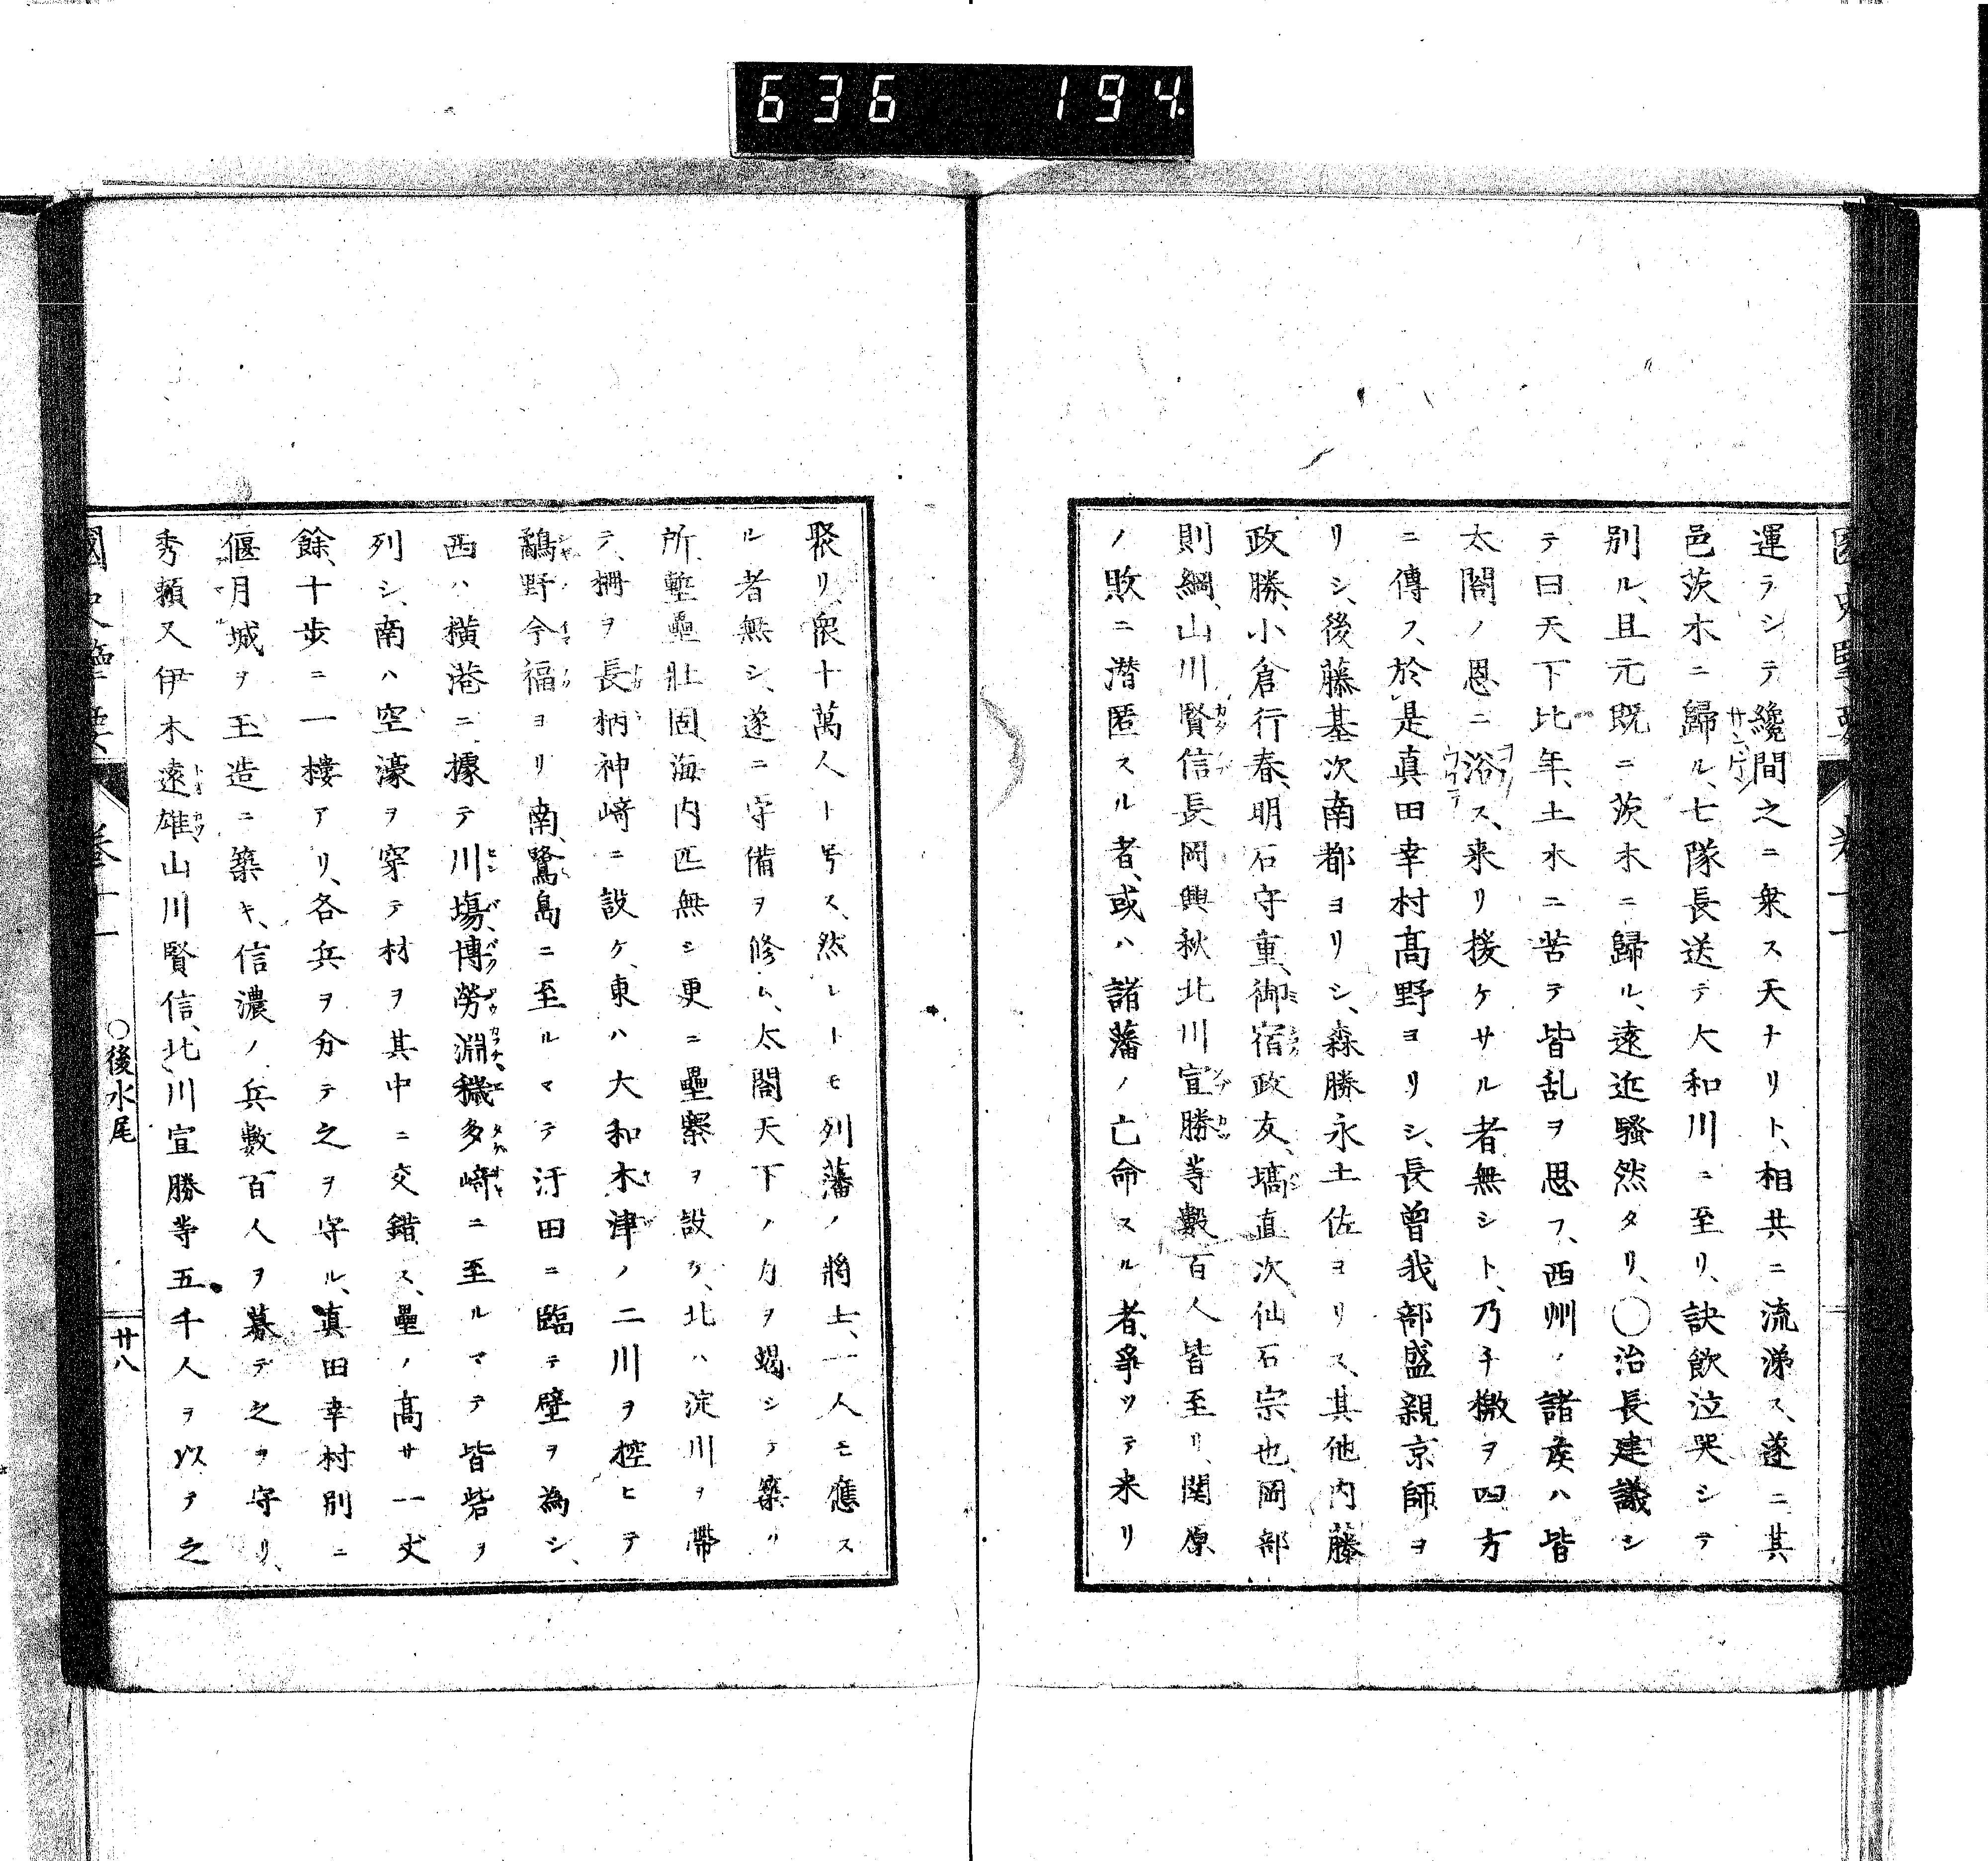 636 194
運ラシテ纔間之ニ乗ス天ナリト、相共ニ流涕ス、遂ニ其
邑茨木ニ歸ル、七隊長送テ大和川ニ至リ、訣飲泣哭シテ
別ル、且元既ニ茨木ニ歸ル、遠近騒然タリ、〇治長建議シ
テ曰天下比年、土木ニ苦テ皆乱ヲ思フ、西州ノ諸侯ハ皆
太閤ノ恩ニ浴ス、来リ援ケサル者無シト、乃チ檄ヲ四方
ニ傳フ、於是真田幸村髙野ヨリシ、長曾我部盛親京師ヨ
リシ、後藤基次南都ヨリシ、森勝永土佐ヨリス、其他内藤
政勝、小倉行春、明石守重、御宿政友、塙直次、仙石宗也、岡部
則綱、山川賢信長岡興秋北川宣勝等數百人皆至リ、関原
ノ敗ニ潜匿スル者、或ハ諸藩ノ亡命スル者、爭ツテ来リ
聚リ、衆十萬人ト号ス、然レトモ列藩ノ將士、一人モ應ス
ル者無シ、遂ニ守備ヲ修ム、太閤天下ノ力ヲ竭シテ築ク
所、塹壘壯固、海内匹無シ更ニ壘寨ヲ設ケ、北ハ淀川ヲ帶
テ、柵ヲ長柄神崎ニ設ケ、東ハ大和木津ノ二川ヲ控ヒテ
鷸野今福ヨリ南、鷺島ニ至ルマテ汙田ニ臨テ壁ヲ為シ、
西ハ横港ニ據テ川塲、博労淵穢多崎ニ至ルマテ皆砦ヲ
列シ、南ハ空濠ヲ穿テ材ヲ其中ニ交錯ス、壘ノ髙サ一丈
餘、十歩ニ一樓アリ、各兵ヲ分テ之ヲ守ル、真田幸村別ニ
偃月城ヲ玉造ニ築キ、信濃ノ兵數百人ヲ募テ之ヲ守リ、
秀頼又伊木遠雄、山川賢信、北川宣勝等五千人ヲ以テ之
〇後水尾
廿八